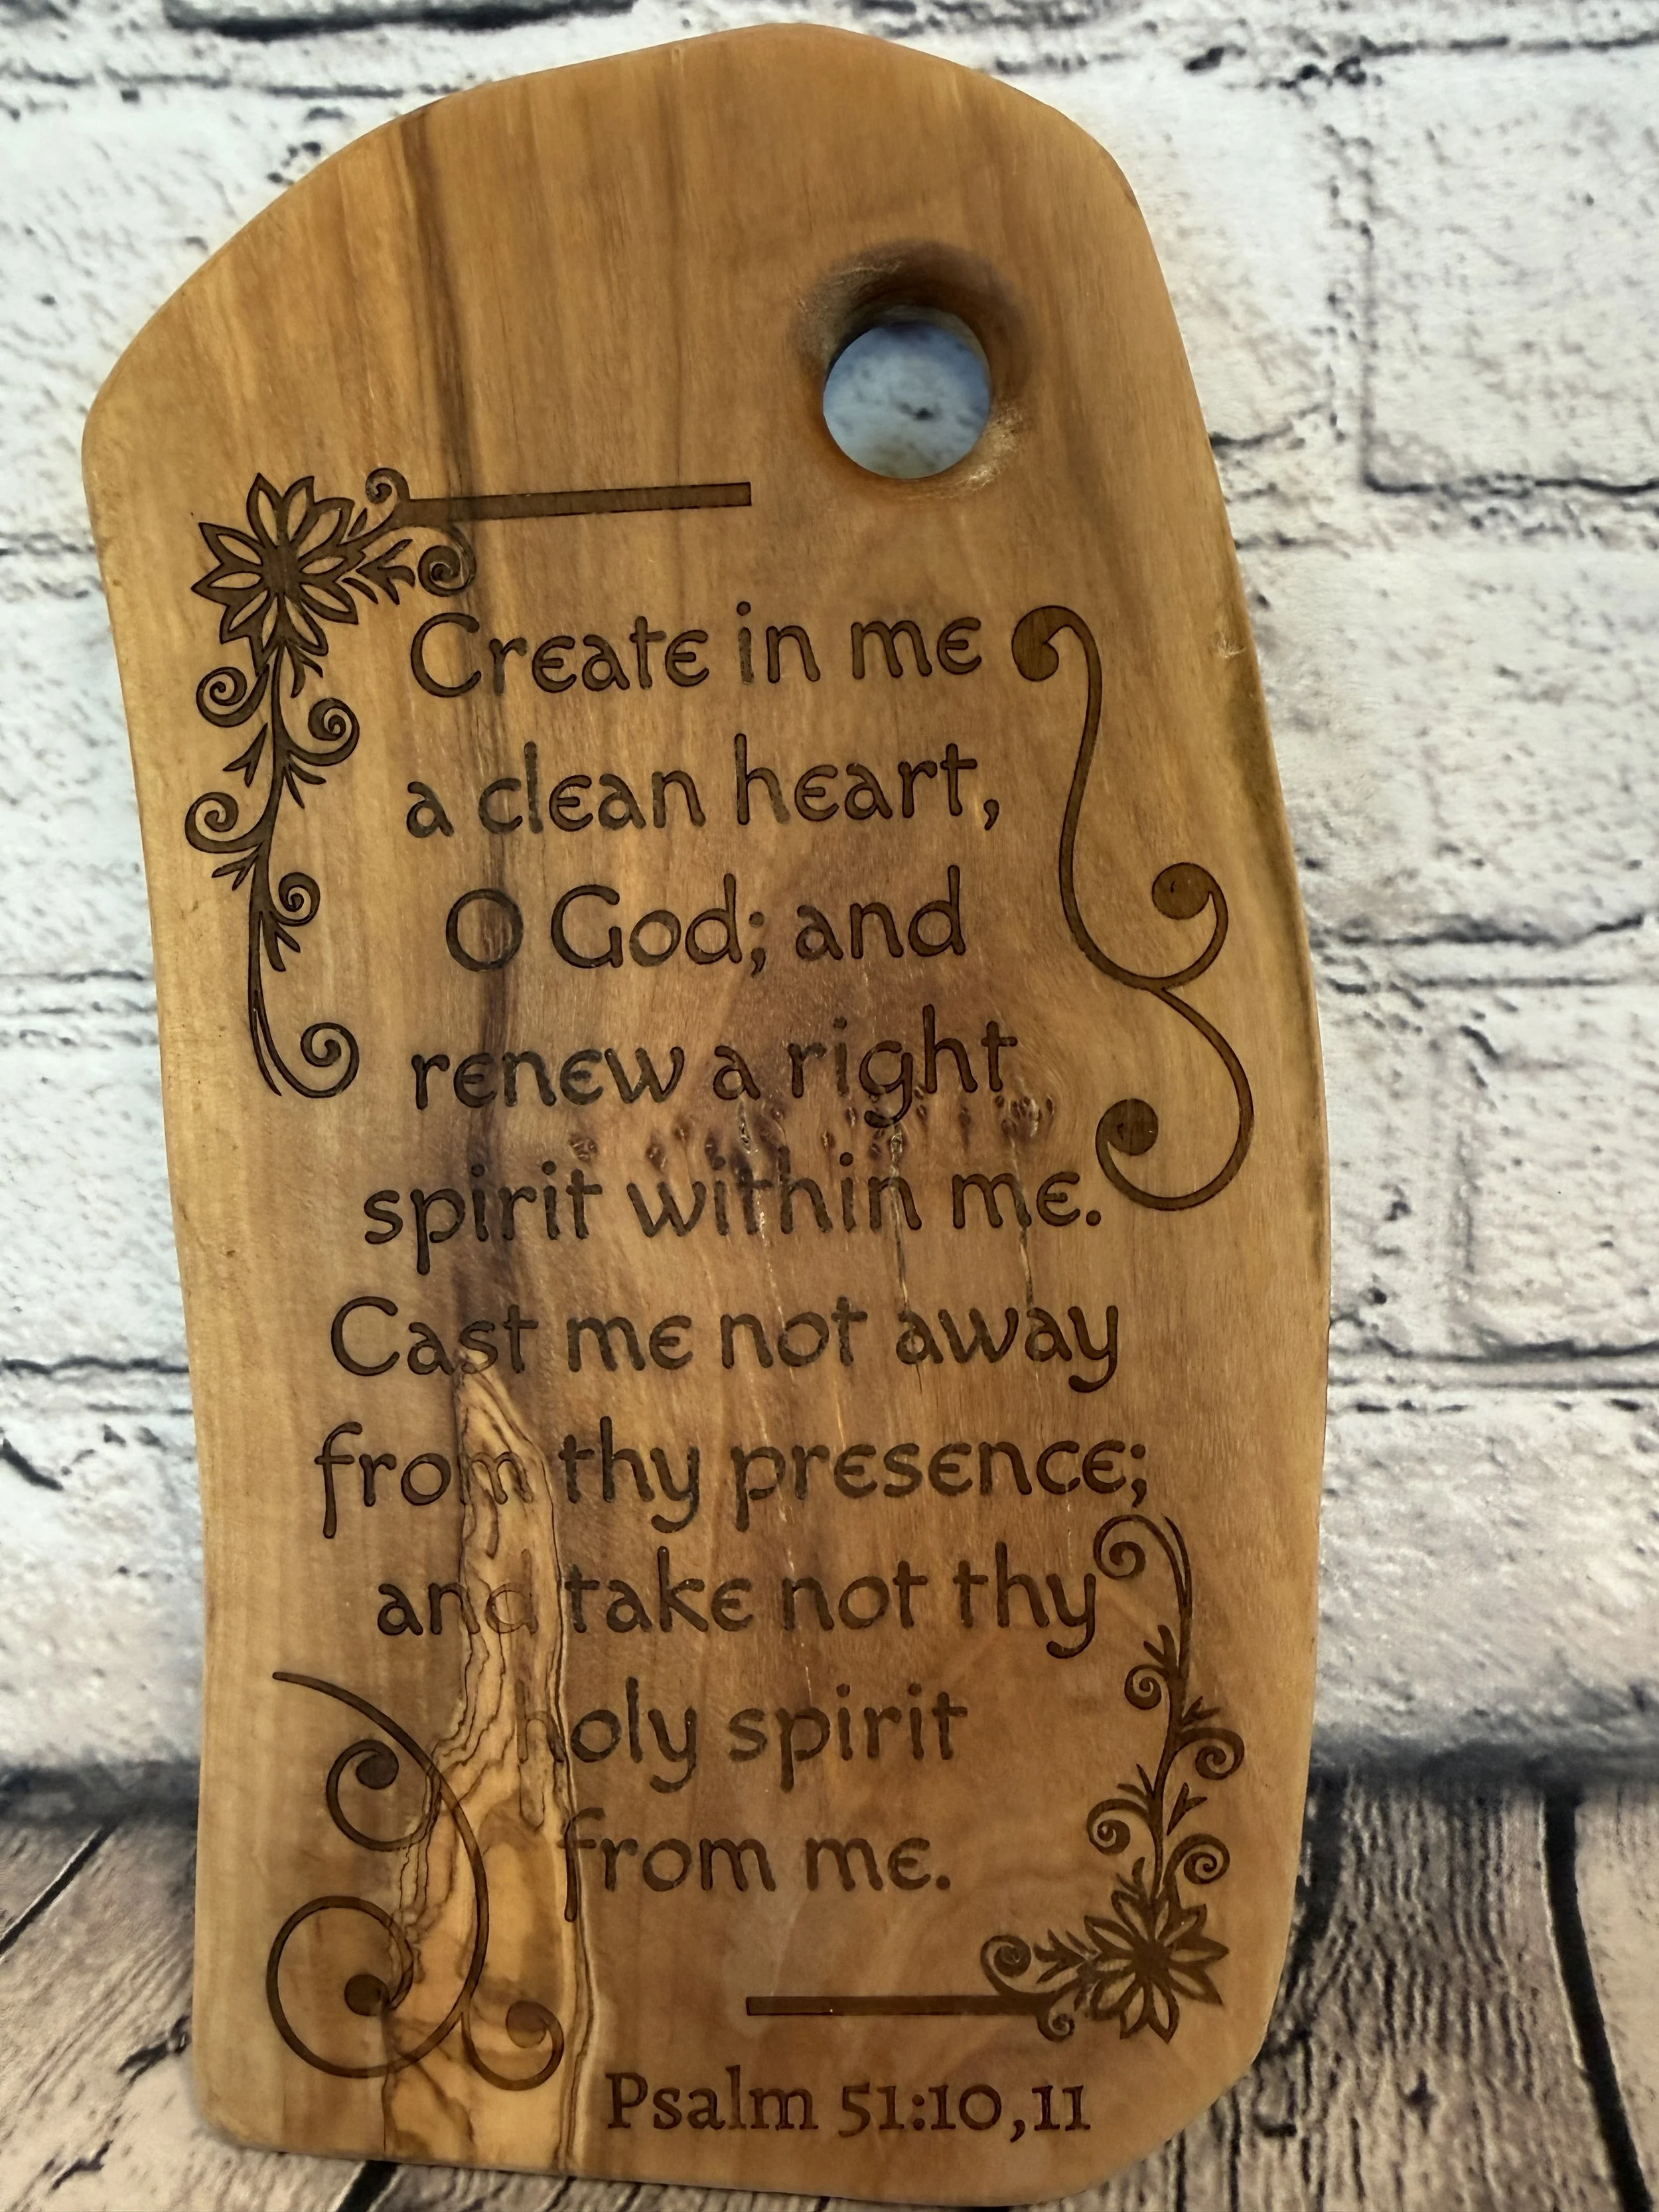 Create in me
a clean heart,
O God; and
renew a right
spirit within me.
Cast me not away
from thy presence;
and take not thy
holy spirit
from me.
Psalm 51:10,11